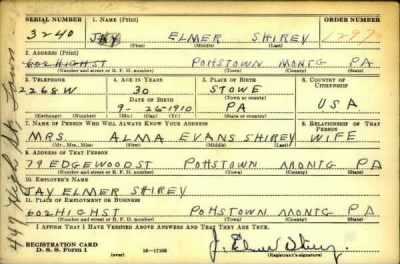 SERIAL NUMBER 1. NAME (Print) ORDER NUMBER
3240 JAY ELMER SHIREY 1297
(First) (Middle) (Last)
2. ADDRESS (Print)
602 HIGH ST POTTSTOWN MONTG PA
(Number and street or R. F. D. number) (Town) (County) (State)
3. TELEPHONE 4. AGE IN YEARS 5. PLACE OF BIRTH 6. COUNTRY OF CITIZENSHIP
2268W 30 STOWE
DATE OF BIRTH (Town or county)
9-26-1910 PA USA
(Exchange) (Number) (Mo.) (Day) (Yr.) (State or country)
7. NAME OF PERSON WHO WILL ALWAYS KNOW YOUR ADDRESS 8. RELATIONSHIP OF THAT PERSON
MRS. ALMA EVANS SHIREY WIFE
(Mr., Mrs., Miss) (First) (Middle) (Last)
9. ADDRESS OF THAT PERSON
79 EDGEWOOD ST POTTSTOWN MONTG PA
(Number and street or R. F. D. number) (Town) (County) (State)
10. EMPLOYER'S NAME
JAY ELMER SHIREY
11. PLACE OF EMPLOYMENT OR BUSINESS
602 HIGH ST POTTSTOWN MONTG PA
(Number and street or R. F. D. number) (Town) (County) (State)
I AFFIRM THAT I HAVE VERIFIED ABOVE ANSWERS AND THAT THEY ARE TRUE.
REGISTRATION CARD
D. S. S. Form 1 (over) 16-17105 J. Elmer Shirey
(Registrant's signature)
449